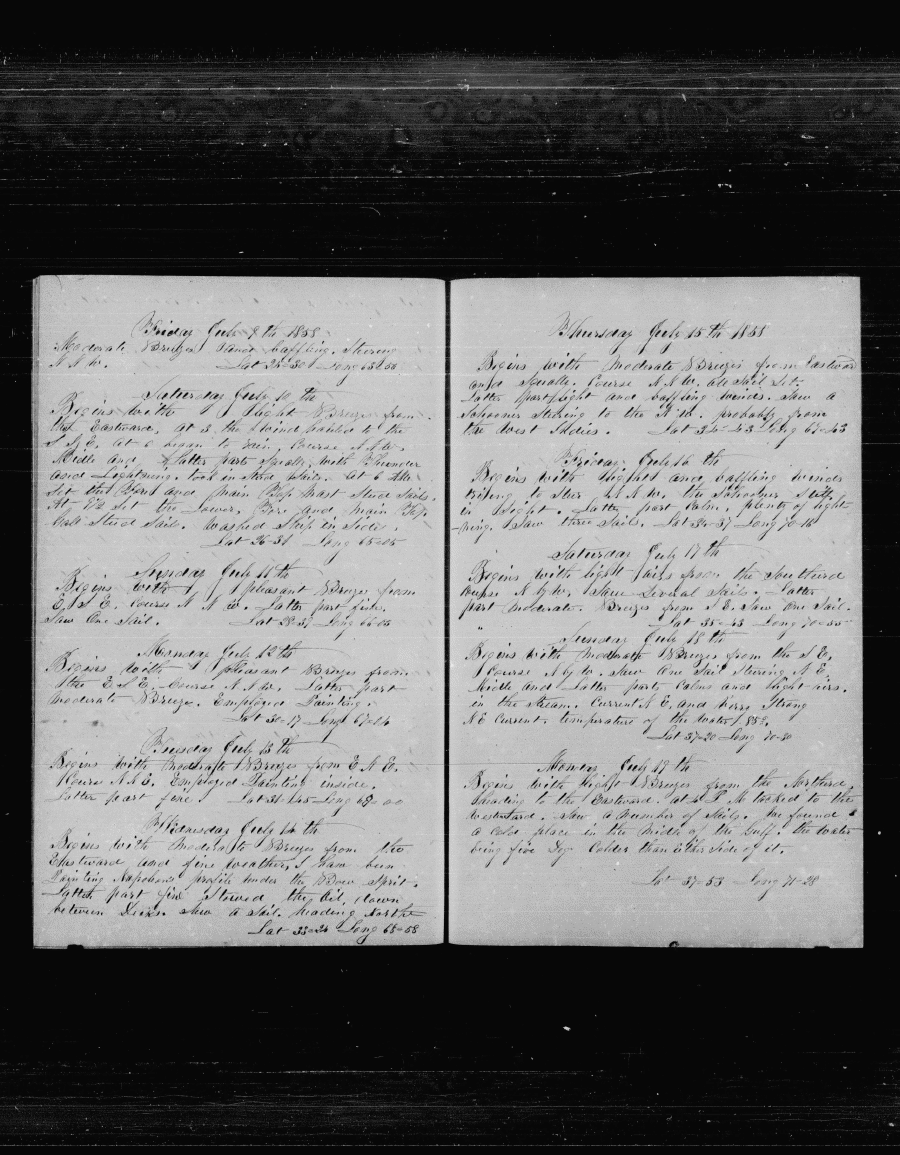 Friday July 9th 1858
Moderate Breezes and baffling. Steering
N.N.W. Lat 24-30 Long 63-50
Saturday July 10th
Begins with Light Breezes from
the Eastward, at 3 the wind hauled to the
S.S.E. at 6 began to rain, Course N.N.W.
Midle and Latter parts Squally with Thunder
and Lightning. took in Stud Sails. at 6 AM
Set the Fore and Main Top Mast Stud Sails.
At 7½ Set the Lower, Fore and Main Top
Gall Stud Sail. washed Ship in Side.
Lat 26-31 Long 65-05
Sunday July 11th
Begins with pleasant Breezes from
E.S.E. Course N.N.W. Latter part fine.
Saw One Sail. Lat 28-39 Long 66-03
Monday July 12th
Begins with pleasant Breezes from
the E.S.E. Course N.N.W. Latter part
moderate Breeze. Employed Painting.
Lat 30-17 Long 67-14
Tuesday July 13th
Begins with Moderate Breezes from E.N.E.
Course N.N.E. Employed Painting inside.
Latter part fine. Lat 31-45 Long 68-00
Wednesday July 14th
Begins with Moderate Breezes from the
Eastward and fine weather, I have been
Painting Napoleons profile under the Bow Sprit.
Latter part fine Stowed the Oil, down
between Decks. Saw a Sail. heading North
Lat 33-24 Long 68-58
Thursday July 15th 1858
Begins with Moderate Breezes from Eastward
and Squally. Course N.N.W. all Sail Set.
Latter part light and baffling winds. Saw a
Schooner Steering to the N.W. probably from
the West Indies. Lat 34-43 Long 69-43
Friday July 16th
Begins with Light and baffling winds
trying to Steer N.N.W. the Schooner Still
in Sight. Latter part Calm, plenty of light-
ning. Saw three Sail. Lat 34-37 Long 70-16
Saturday July 17th
Begins with light airs from the Southard
Course N.by W. Saw Several Sails. Latter
part Moderate Breezes from S.E. Saw One Sail.
Lat 35-43 Long 70-55
Sunday July 18th
Begins with Moderate Breezes from the S.E.
Course N.by W. Saw One Sail Steering N.E.
Midle and Latter part, Calms and Light airs.
in the Stream. Current N.E. and Very Strong
N.E Current. temperature of the water 85°.
Lat 37-20 Long 70-30
Monday July 19th
Begins with Light Breezes from the Northard
hauling to the Eastward. at 4 P.M tacked to the
Westward. Saw a number of Sails. We found
a Cold place in the midle of the Gulf. the water
being five Deg Colder than Either Side of it.
Lat 37-53 Long 71-28